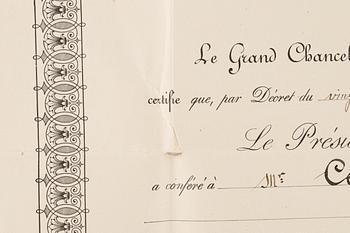 Le Grand Chancel
certifie que, par Décret du vingt
Le Présid
a conféré à Mr Co